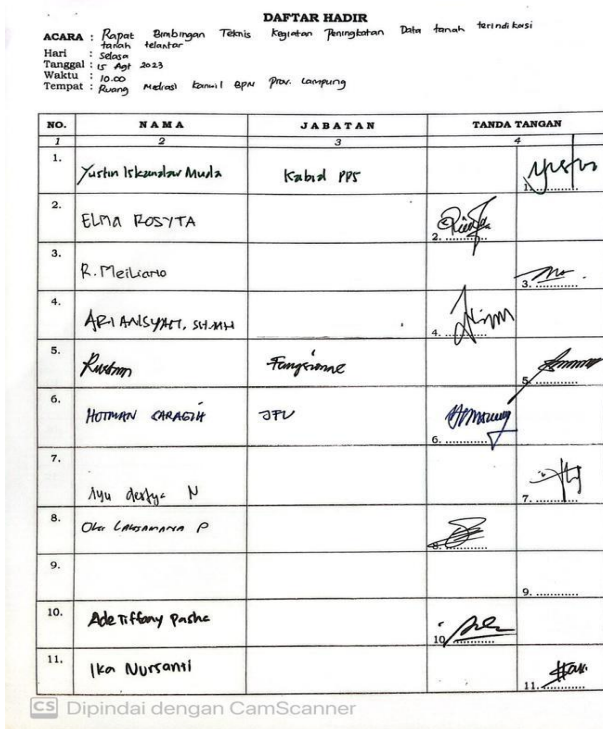 DAFTAR HADIR
ACARA : Rapat Bimbingan Teknis Kegiatan Peningkatan Data tanah terindikasi
tanah telantar
Hari : Selasa
Tanggal : 15 Agt 2023
Waktu : 10.00
Tempat : Ruang Mediasi Kanwil BPN Prov. Lampung
NO. NAMA JABATAN TANDA TANGAN
1 2 3 4
1. Yustin Iskandar Muda Kabid PPS 1.
2. ELMA ROSYTA 2. ............
3. R. Meiliano 3. ............
4. ARIANSYAH, SH.MH 4. ............
5. Rustam 5. ............
6. HOTMAN SARAGIH JFU 6. ............
7. Ayu N 7. ............
8. LAKSAMANA P 8. ............
9. 9. ............
10. Ade Tiffany Pasha 10
11. Ika Nursanti 11. ............
CS Dipindai dengan CamScanner